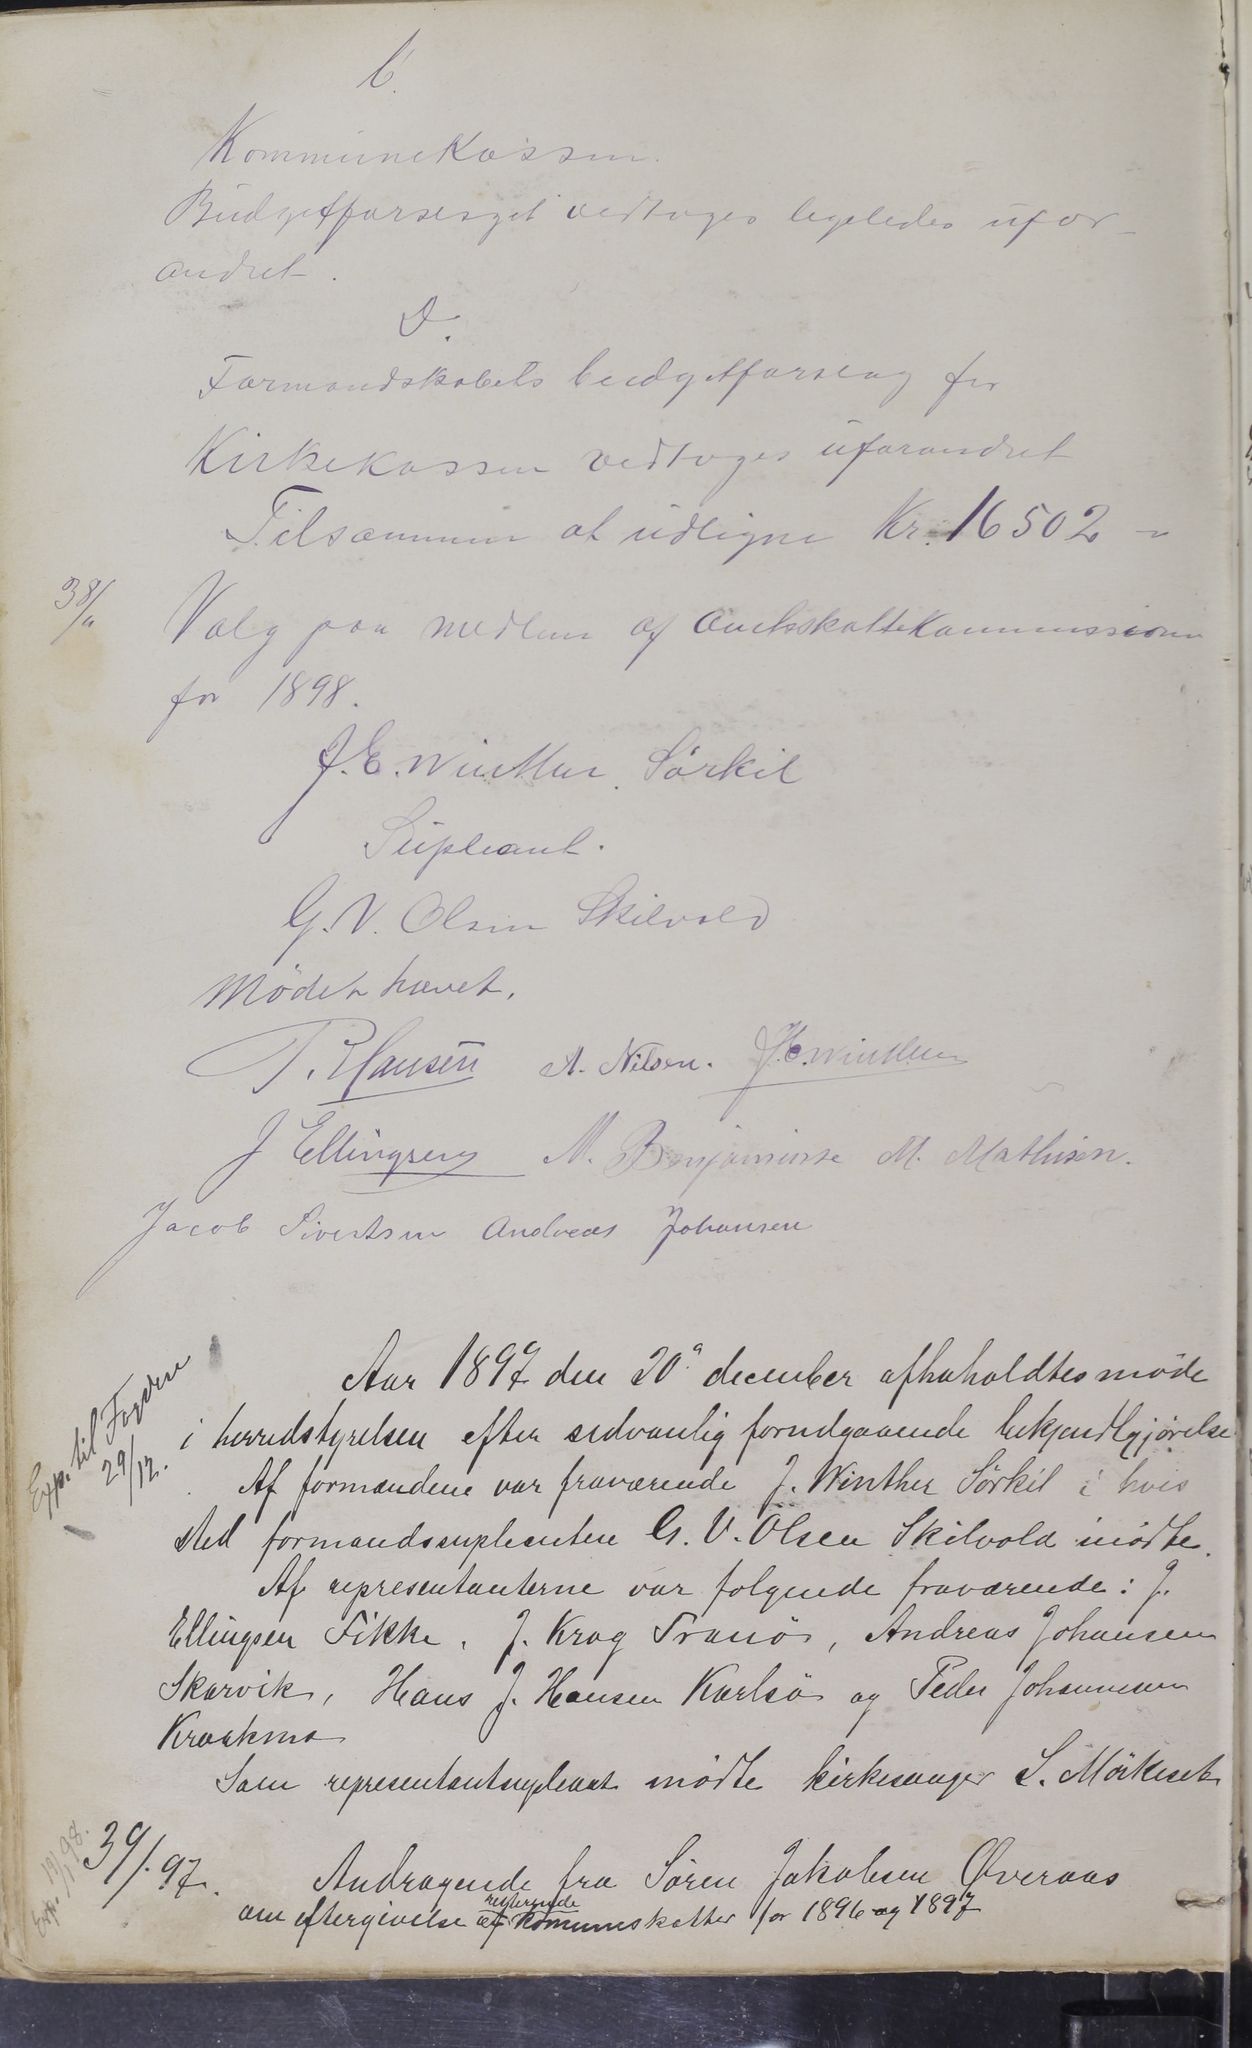 C.
Kommunekassen.
Budgetforslaget vedtoges ligeledes ufor-
andret.
D.
Formandskabets budgetforslag for
Kirkekassen vedtoges uforandret
Tilsammen at udligne Kr. 16502 -
38/
Valg paa medlem af Amtsskattekommissionen
for 1898.
J. E. Winther. Sörkil
Supleant.
G. V. Olsen Skilvold
Mödet hævet.
P. Hansen A. Nilsen. J. E. Winther
J Ellingsen M. Benjaminse M. Mathisen.
Jacob Sivertsen Andreas Johansen
Exp. til Fogden
29/12.
Aar 1897 den 20de december afhuholdtes möde
i herredstyrelsen efter sedvanlig forudgaaende bekjendtgjörelse
Af formændene var fraværende J. Winther Sörkil i hvis
sted formandssuplenten G. V. Olsen Skilvold mödte.
Af representanterne var følgende fraværende: J.
Ellingsen Fikke, J. Krag Tranö, Andreas Johansen
Skarvik, Hans J. Hansen Karlsö og Peder Johannesen
Kraakmo
Som representantsupleant mödte kirkesanger S. Mörkeset
39/. 97.
Andragende fra Sören Jakobsen Øveraas
om eftergivelse af resterende kommuneskatter for 1896 og 1897
Exp. 19/1 98.